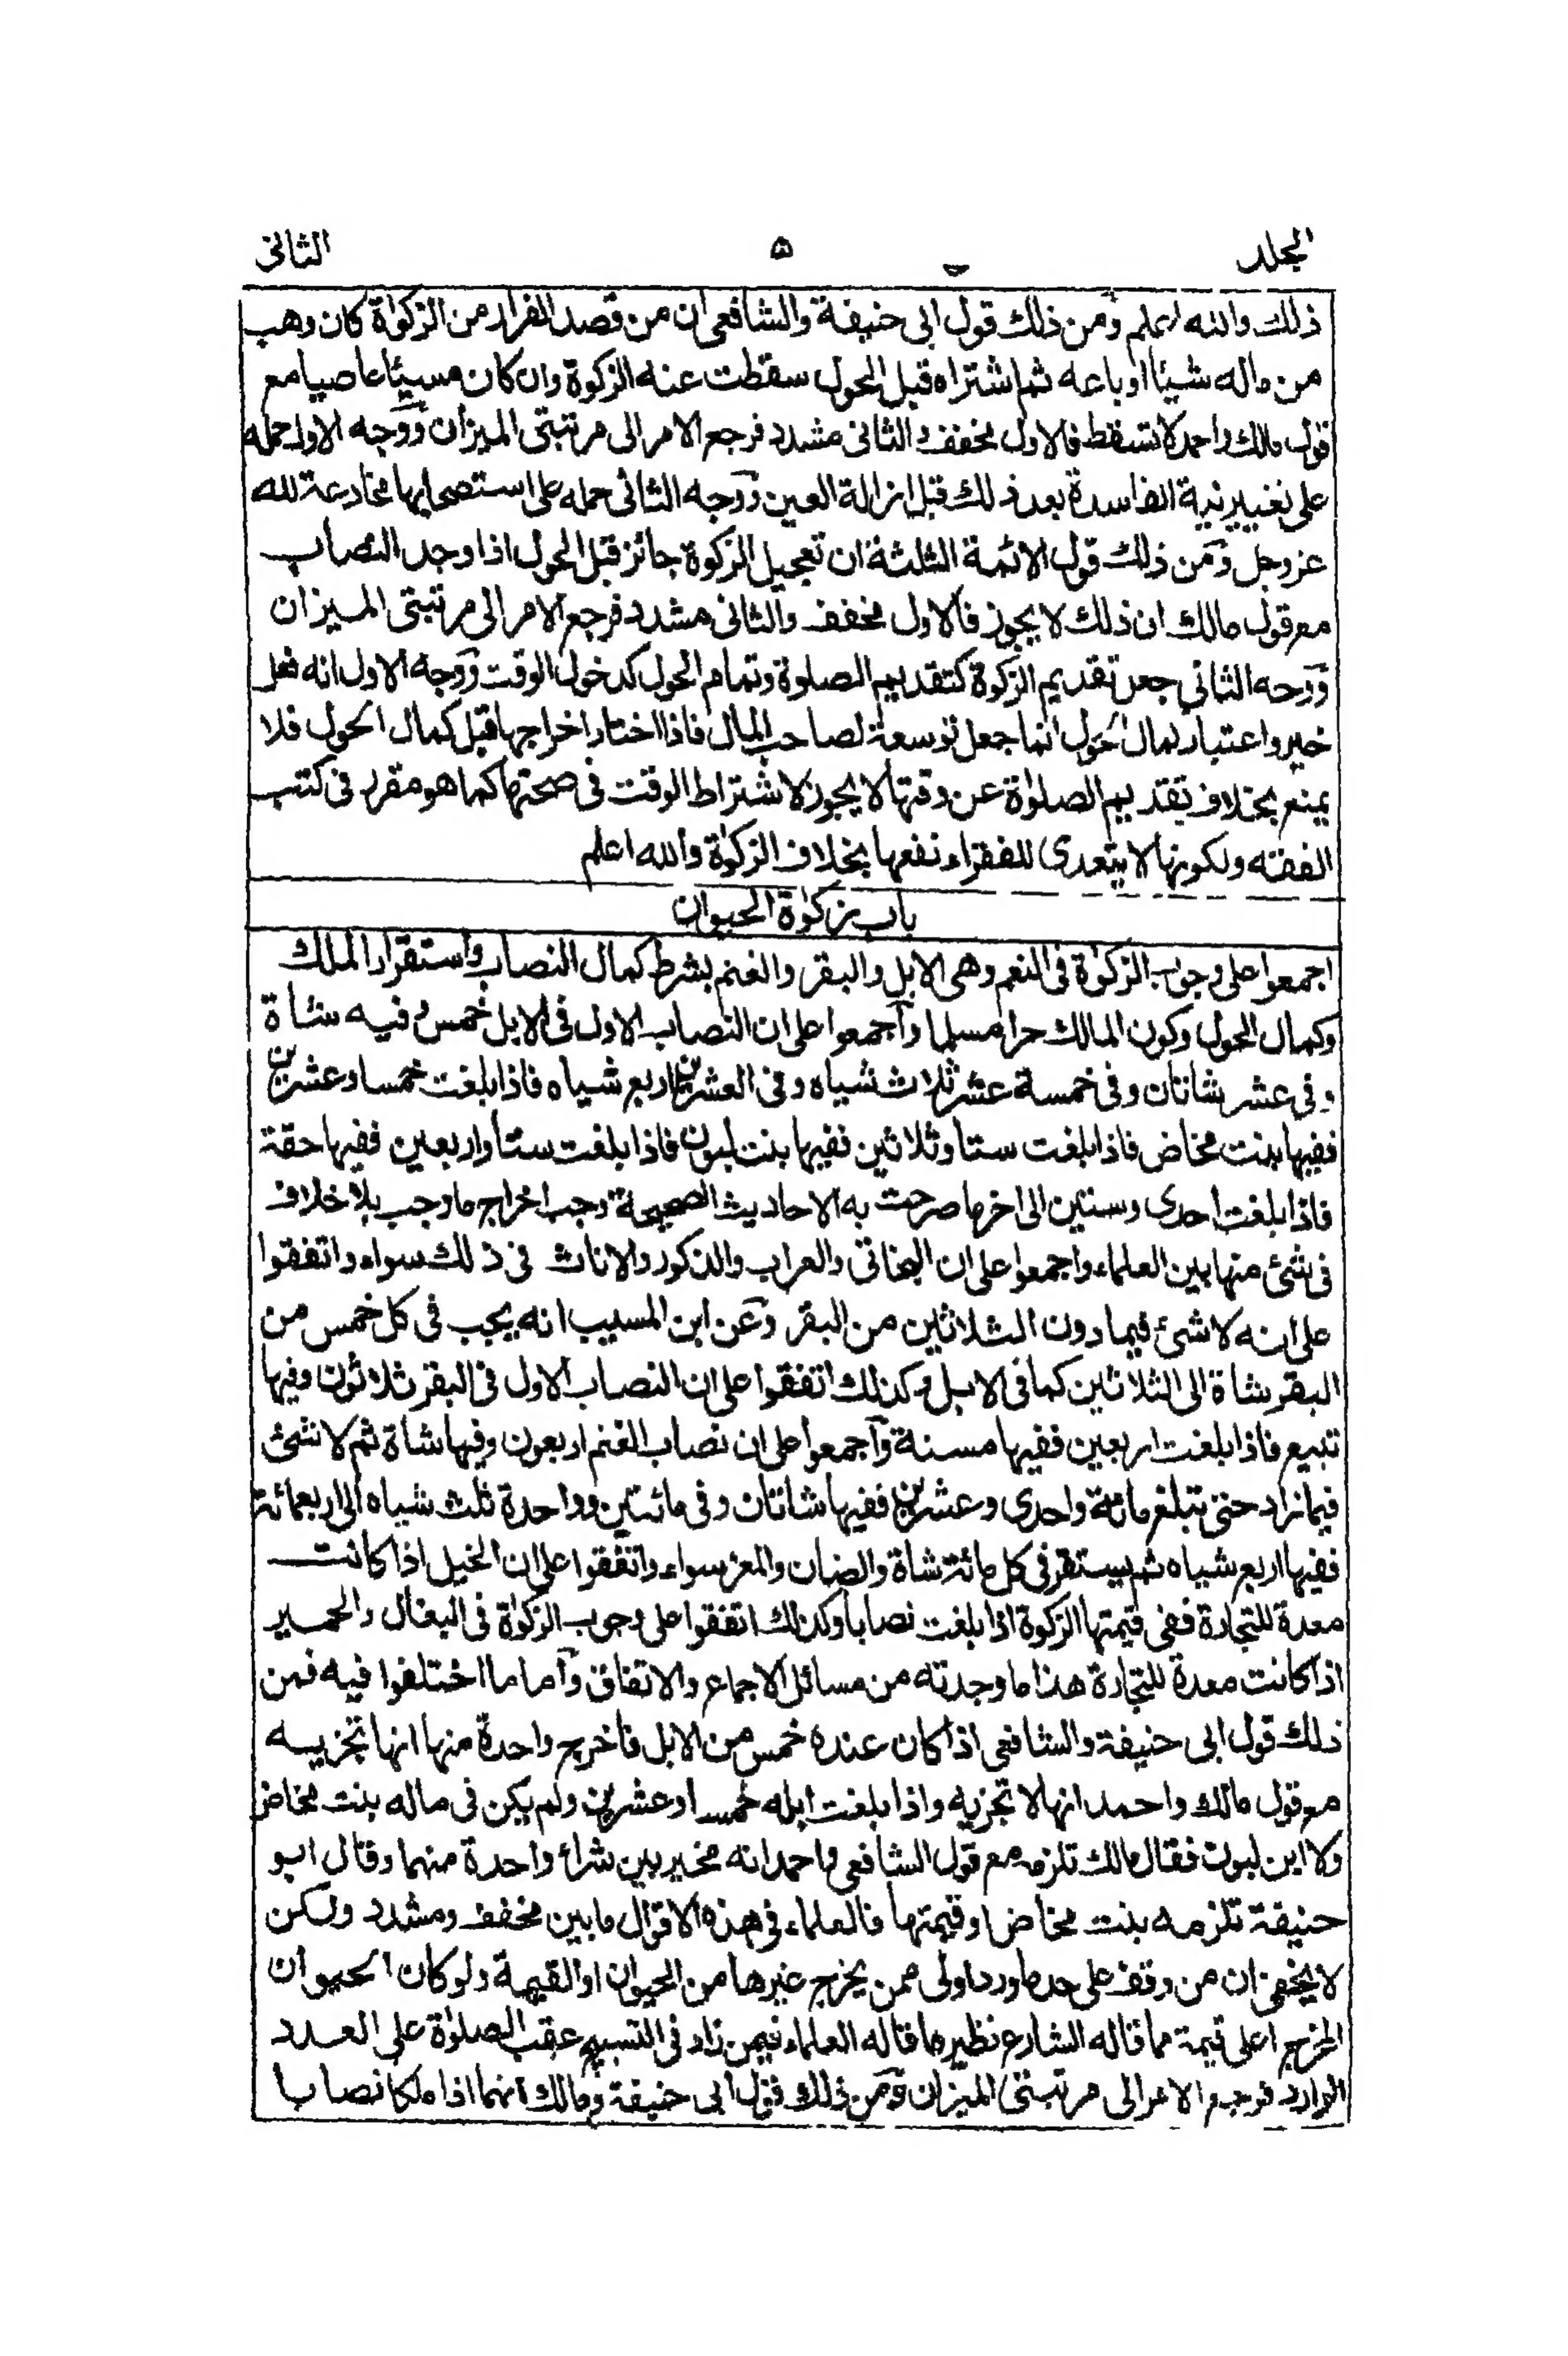 المجلد ٥ الثانى
ذلك والله اعلم ومن ذلك قول ابى حنيفة والشافعى ان من قصد الفرار من الزكوٰة كان وهب
من ماله شيئا اوباعه ثم اشتراه قبل الحول سقطت عنه الزكوة وان كان مسيئا عاصيا مع
قول مالك واحمد لا تسقط فالاول مخفف والثانى مشدد فرجع الامر الى مرتبتى الميزان ووجه الاول حمله
على تغيير نية الفاسدة بعد ذلك قبل ازالة العين ووجه الثانى حمله على استصحابها مخادعة لله
عز وجل ومن ذلك قول الائمة الثلثة ان تعجيل الزكوة جائز قبل الحول اذا وجد النصاب
مع قول مالك ان ذلك لا يجوز فالاول مخفف والثانى مشدد فرجع الامر الى مرتبتى الميزان
ووجه الثانى جعل تقديم الزكوة كتقديم الصلوة وتمام الحول كدخول الوقت ووجه الاول انه فعل
خير واعتبار كمال الحول انما جعل توسعة لصاحب المال فاذا اختار اخراجها قبل كمال الحول فلا
يمنع بخلاف تقديم الصلوٰة عن وقتها لا يجوز لاشتراط الوقت فى صحتها كما هو مقرر فى كتب
الفقه ولكونها لا يتعدى للفقراء نفعها بخلاف الزكوٰة والله اعلم
باب زكوٰة الحيوان
اجمعوا على وجوب الزكوٰة فى النعم وهى الابل والبقر والغنم بشرط كمال النصاب واستقرار الملك
وكمال الحول وكون المالك حرا مسلما واجمعوا على ان النصاب الاول فى الابل خمس وفيه شاة
وفى عشر شاتان وفى خمسة عشر ثلاث شياه وفى العشرين اربع شياه فاذا بلغت خمسا وعشرين
ففيها بنت مخاض فاذا بلغت ستا وثلاثين ففيها بنت لبون فاذا بلغت ستا واربعين ففيها حقة
فاذا بلغت احدى وستين الى اخر ما صرحت به الاحاديث الصحيحة وجب اخراج ما وجب بلا خلاف
فى شئ منها بين العلماء واجمعوا على ان البخاتى والعراب والذكور والاناث فى ذلك سواء واتفقوا
على انه لا شئ فيما دون الثلاثين من البقر وعن ابن المسيب انه يجب فى كل خمس من
البقر شاة الى الثلاثين كما فى الابل وكذلك اتفقوا على ان النصاب الاول فى البقر ثلاثون وفيها
تبيع فاذا بلغت اربعين ففيها مسنة واجمعوا على ان نصاب الغنم اربعون وفيها شاة ثم لا شئ
فيما زاد حتى تبلغ مائة واحدى وعشرين ففيها شاتان وفى مائتين وواحدة ثلث شياه الى اربعمائة
ففيها اربع شياه ثم يستقر فى كل مائة شاة والضان والمعز سواء واتفقوا على ان الخيل اذا كانت
معدة للتجارة ففى قيمتها الزكوة اذا بلغت نصابا وكذلك اتفقوا على وجوب الزكوٰة فى البغال والحمير
اذا كانت معدة للتجارة هذا ما وجدته من مسائل الاجماع والاتفاق واما ما اختلفوا فيه فمن
ذلك قول ابى حنيفة والشافعى اذا كان عنده خمس من الابل فاخرج واحدة منها انها تجزيه
مع قول مالك واحمد انها لا تجزيه واذا بلغت ابله خمسا وعشرين ولم يكن فى ماله بنت مخاض
ولا ابن لبون فقال مالك تلزمه مع قول الشافعى واحمد انه مخير بين شراء واحدة منهما وقال ابو
حنيفة تلزمه بنت مخاض او قيمتها فالعلماء فى هذه الاقوال ما بين مخفف ومشدد ولكن
لا يخفى ان من وقف على حد ما ورد اولى ممن يخرج غيرها من الحيوان او القيمة ولو كان الحيوان
المخرج اعلى قيمة مما قاله الشارع نظير ما قاله العلماء فيمن زاد فى التسبيح عقب الصلوٰة على العدد
الوارد فرجع الامر الى مرتبتى الميزان ومن ذلك قول ابى حنيفة ومالك انهما اذا ملكا نصابا